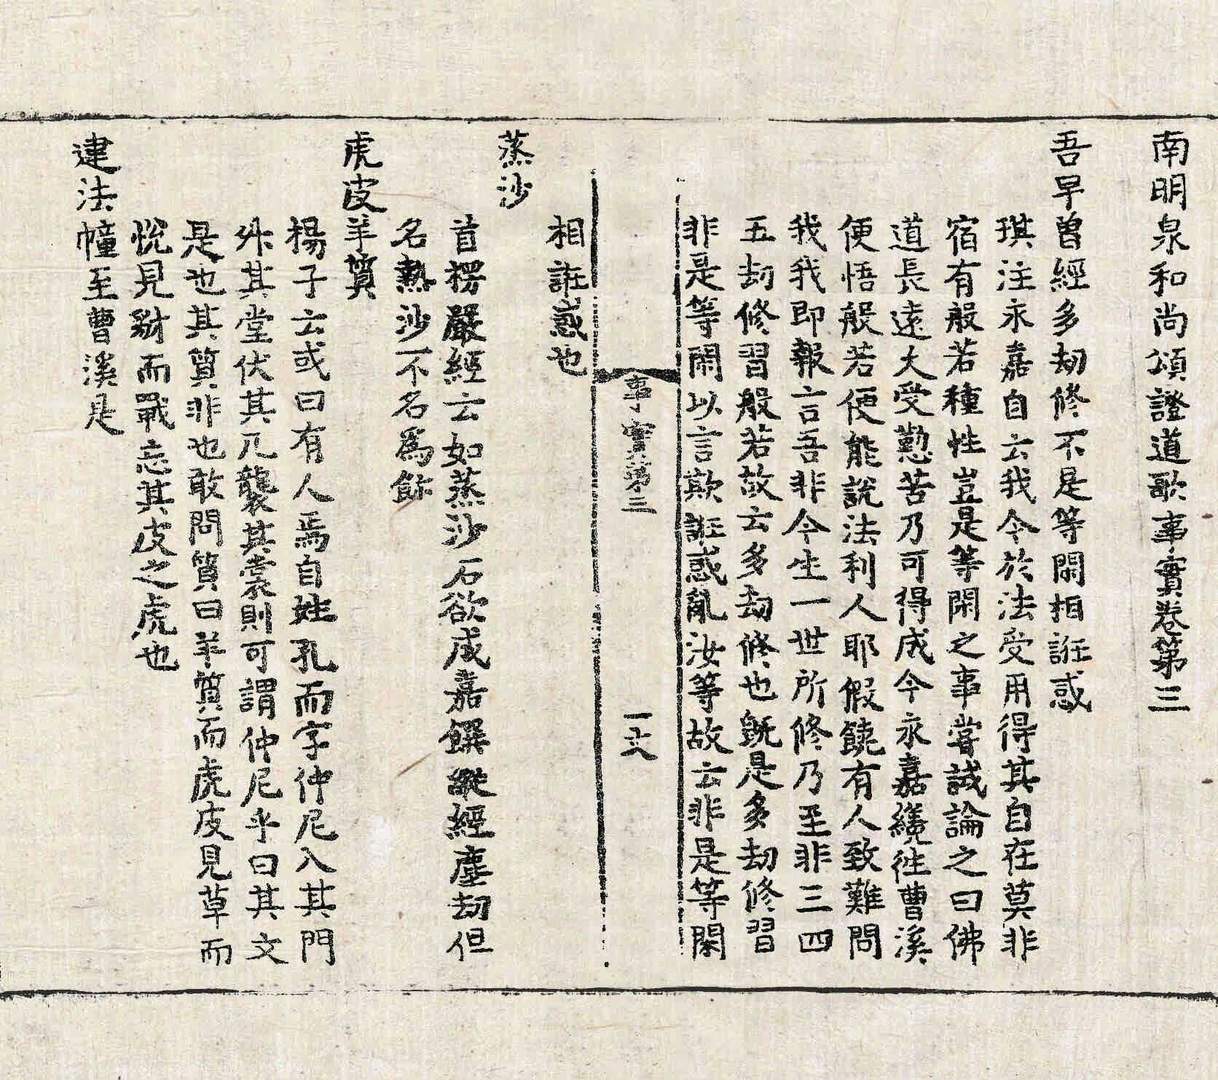 南明泉和尚頌證道歌事實卷第三
吾早曾經多劫修不是等閑相誑惑
琪注永嘉自云我今於法受用得其自在莫非
宿有般若種性豈是等閑之事嘗試論之曰佛
道長遠大受懃苦乃可得成今永嘉纔徃曹溪
便悟般若便能說法利人耶假饒有人致難問
我我即報言吾非今生一世所修乃至非三四
五劫修習般若故云多劫修也旣是多劫修習
非是等閑以言欺誑惑亂汝等故云非是等閑
事實第三
相誑惑也
蒸沙
首楞嚴經云如蒸沙石欲成嘉饌縱經塵劫但
名熱沙不名爲飰
虎皮羊質
楊子云或曰有人焉自姓孔而字仲尼入其門
外其堂伏其几襲其裳則可謂仲尼乎曰其文
是也其質非也敢問質曰羊質而虎皮見草而
悅見豺而戰忘其皮之虎也
建法幢至曹溪是